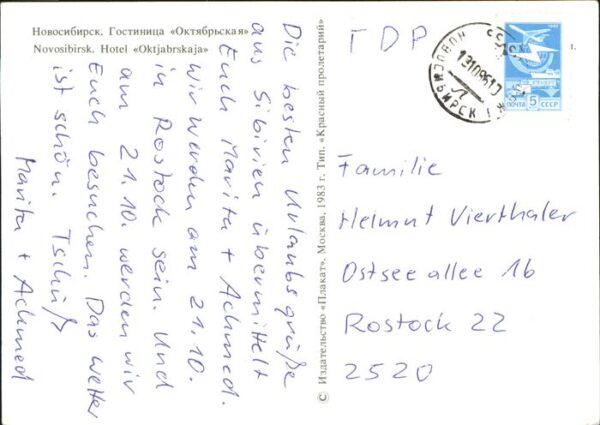 Новосибирск. Гостиница «Октябрьская»
Novosibirsk. Hotel «Oktjabrskaja»
Die besten Urlaubsgrüße
aus Sibirien übermittelt
Euch Marita + Achmed.
Wir werden am 21.10.
in Rostock sein. Und
am 21.10. werden wir
Euch besuchen. Das Wetter
ist schön. Tschüß
Marita + Achmed
© Издательство «Плакат». Москва, 1983 г. Тип. «Красный пролетарий»
ГДР
СССР
1982
ПОЧТА 5 СССР
1.
Familie
Helmut Vierthaler
Ostseeallee 16
Rostock 22
2520